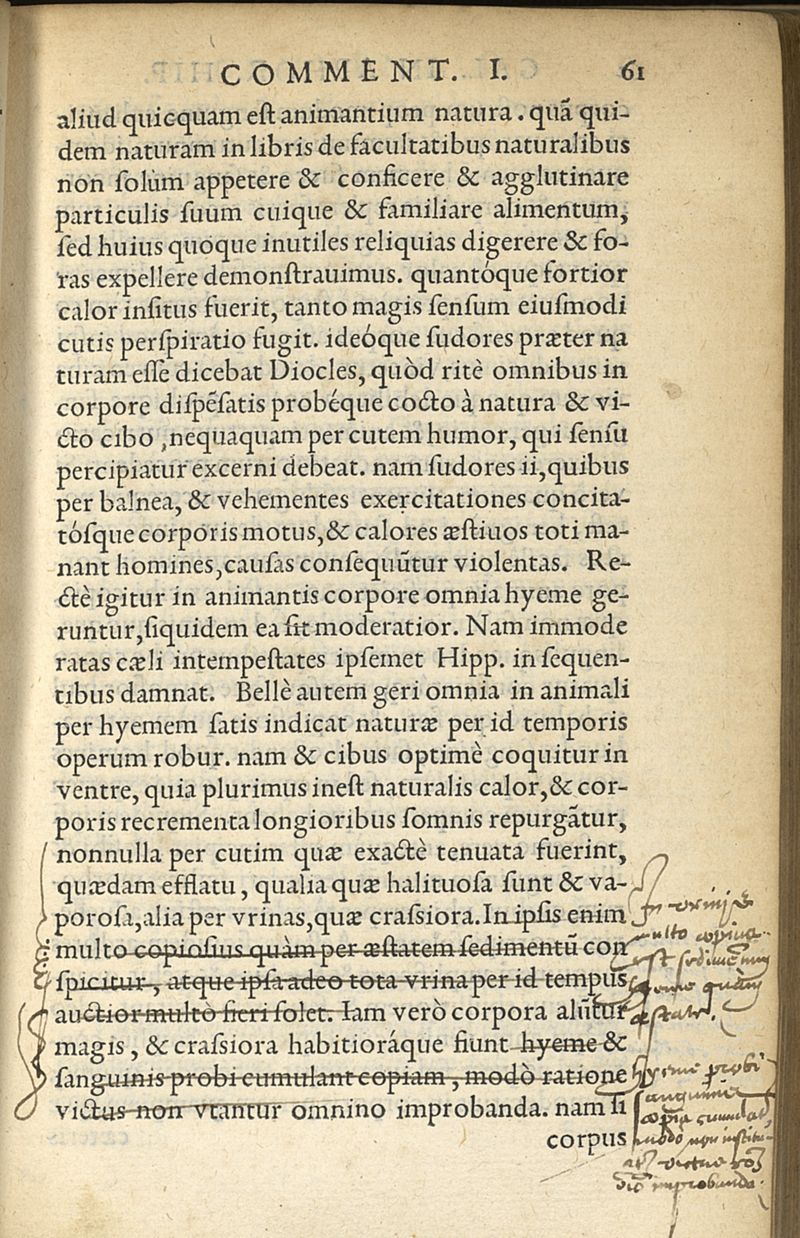 COMMENT. I. 61
aliud quicquam est animantium natura. quã qui-
dem naturam in libris de facultatibus naturalibus
non solùm appetere & conficere & agglutinare
particulis suum cuique & familiare alimentum,
sed huius quoque inutiles reliquias digerere & fo-
ras expellere demonstrauimus. quantóque fortior
calor insitus fuerit, tanto magis sensum eiusmodi
cutis perspiratio fugit. ideóque sudores præter na
turam esse dicebat Diocles, quòd ritè omnibus in
corpore dispẽsatis probéque cocto à natura & vi-
cto cibo, nequaquam per cutem humor, qui sensu
percipiatur excerni debeat. nam sudores ii, quibus
per balnea, & vehementes exercitationes concita-
tósque corporis motus, & calores æstiuos toti ma-
nant homines, causas consequũtur violentas. Re-
ctè igitur in animantis corpore omnia hyeme ge-
runtur, siquidem ea sit moderatior. Nam immode
ratas cæli intempestates ipsemet Hipp. in sequen-
tibus damnat. Bellè autem geri omnia in animali
per hyemem satis indicat naturæ per id temporis
operum robur. nam & cibus optimè coquitur in
ventre, quia plurimus inest naturalis calor, & cor-
poris recrementa longioribus somnis repurgãtur,
nonnulla per cutim quæ exactè tenuata fuerint,
quædam efflatu, qualia quæ halituosa sunt & va-
porosa, alia per vrinas, quæ crassiora. In ipsis enim
multo copiosius quàm per æstatem sedimentũ con
spicitur, atque ipsa adeo tota vrina per id tempus
auctior multò fieri solet. Iam verò corpora alũtur
magis, & crassiora habitioráque fiunt hyeme &
sanguinis probi cumulant copiam, modò ratione
victus non vtantur omnino improbanda. nam si
corpus
multo copiosius
est sedimentum
quàm
æstate.
hyeme probi
sanguinis
modo non
victus
improbanda.